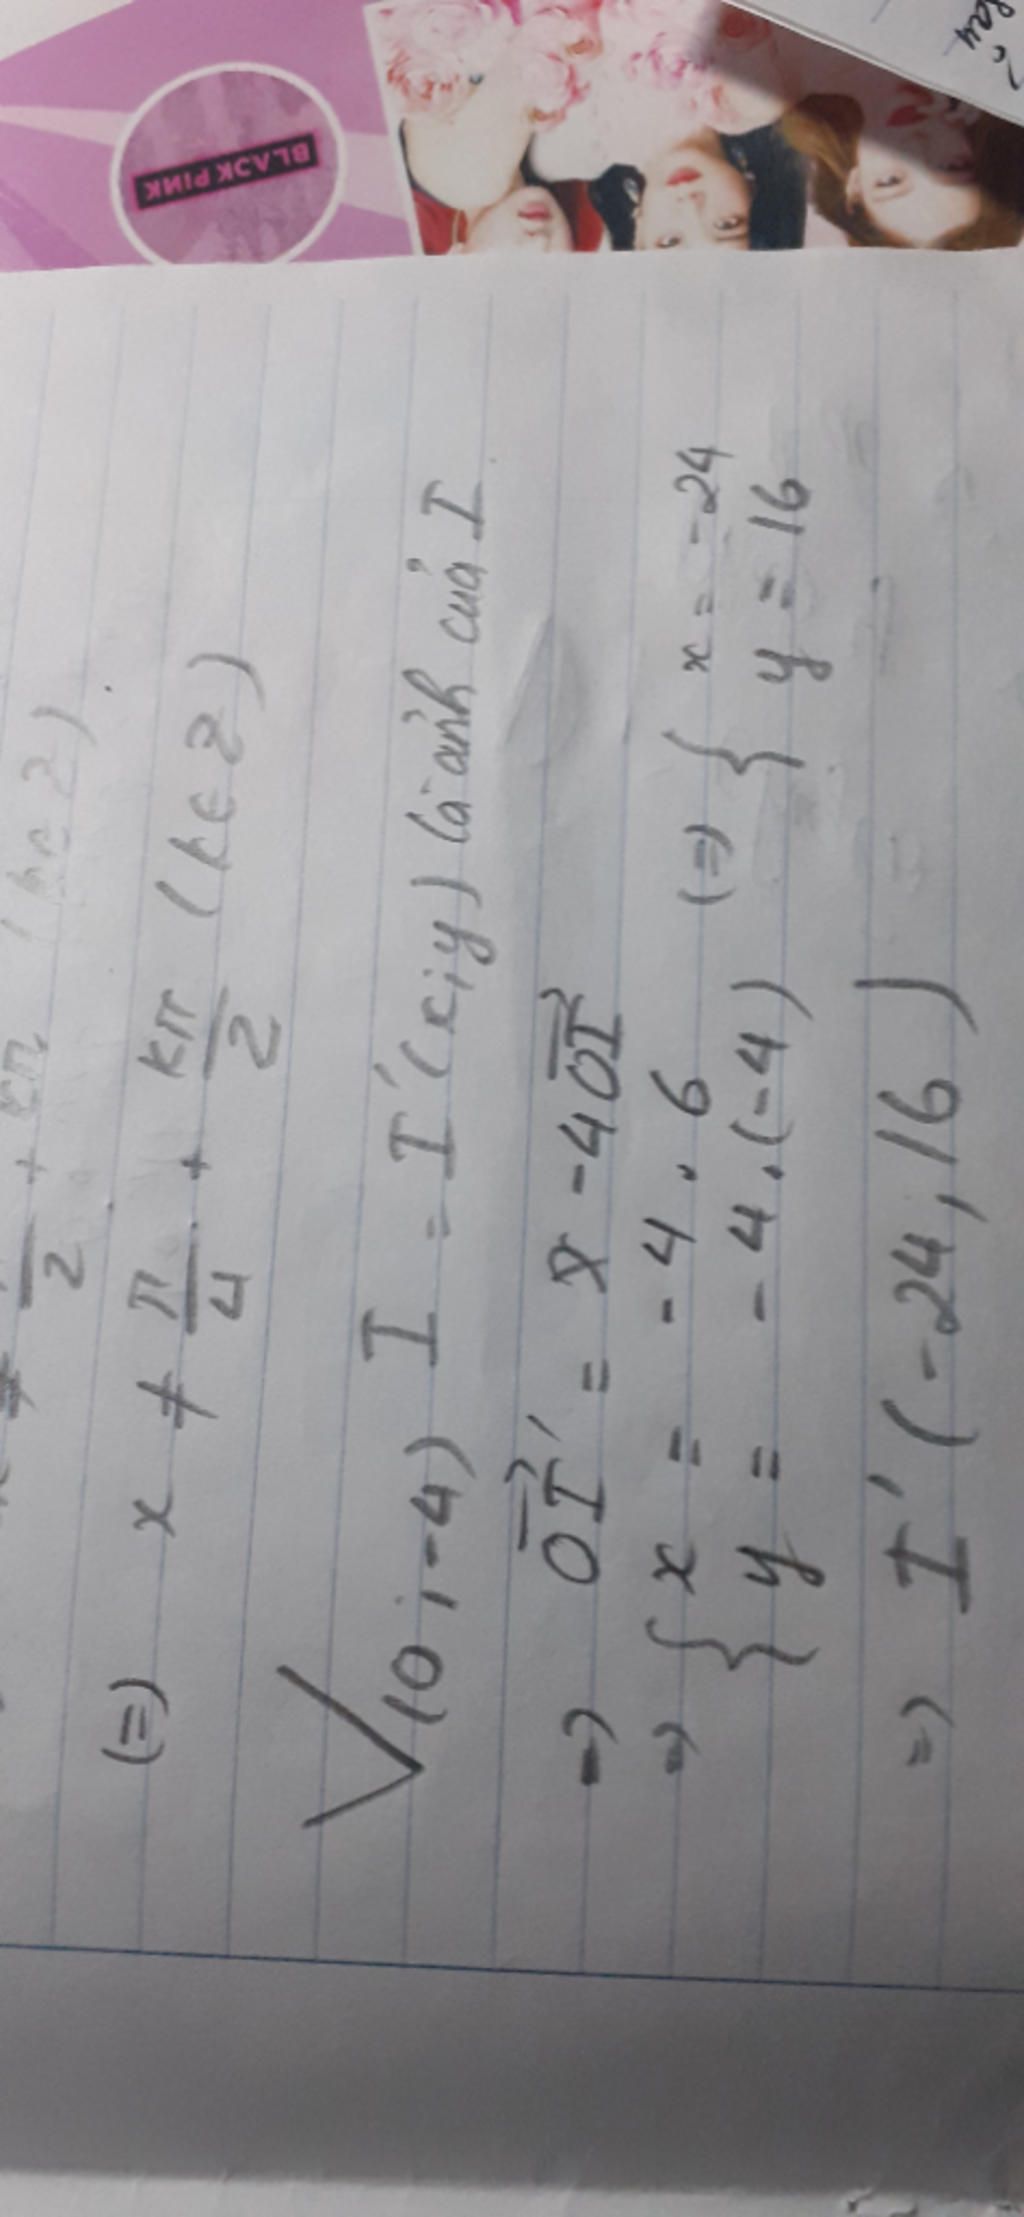 BLACKPINK
2
(=) x ≠ π/4 + kπ/2 (k ∈ Z)
V(0;-4) I = I'(x;y) là ảnh của I
=> OI' = -4 OI
=> { x = -4 . 6 (=) { x = -24
y = -4 . (-4) y = 16
=> I' (-24, 16)